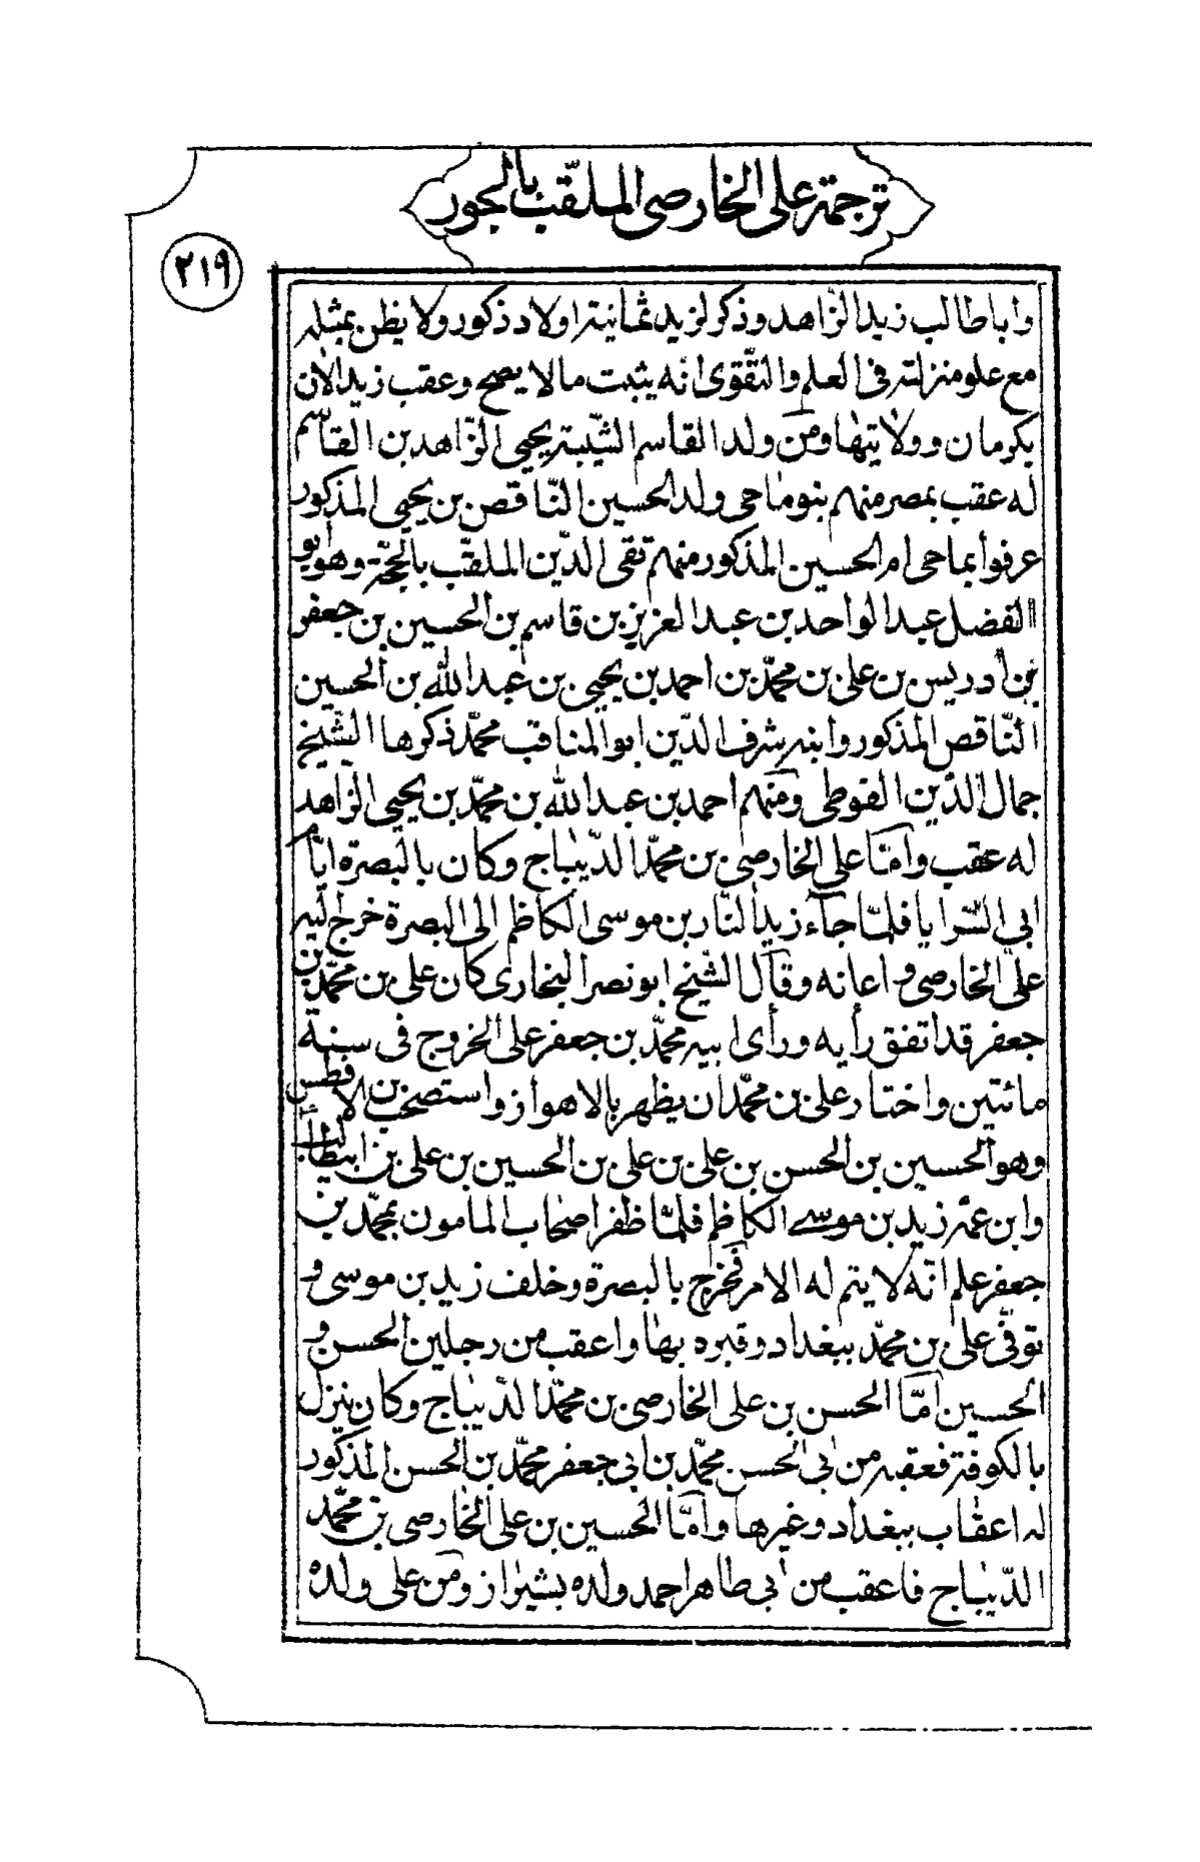 ترجمة على الخارصى الملقّب بالجور
٢١٩
وابا طالب زيد الزّاهد وذكر لزيد ثمانية اولاد ذكور ولا يظن بمثله
مع علو منزلته فى العلم والتّقوى انه يثبت ما لا يصح وعقب زيد الأن
بكرمان وولايتها ومن ولد القاسم الشّبيته يحيى الزّاهد بن القاسم
له عقب بمصر منهم بنو ماحى ولد الحسين النّاقص بن يحيى المذكور
عرفوا بماحى ام الحسين المذكور منهم تقى الدّين الملقّب بالحجّة وهو ابو
الفضل عبد الواحد بن عبد العزيز بن قاسم بن الحسين بن جعفر
بن ادريس بن على بن محمّد بن احمد بن يحيى بن عبد الله بن الحسين
النّاقص المذكور وابنه شرف الدّين ابو المناقب محمّد ذكرها الشّيخ
جمال الدّين الفوطى ومنهم احمد بن عبد الله بن محمّد بن يحيى الزاهد
له عقب وامّا على الخارصى بن محمّد الدّيباج وكان بالبصرة ايّام
ابى السّرايا فلمّا جاء زيد النّار بن موسى الكاظم الى البصرة خرج اليه
علىّ الخارصى واعانه وقال الشّيخ ابو نصر البخارى كان على بن محمّد بن
جعفر قد اتفق رأيه ورأى ابيه محمّد بن جعفر على الخروج فى سنة
مائتين واختار على بن محمّد ان يظهر بالاهواز واستصحب بن الافطس
وهو الحسين بن الحسن بن على بن على بن الحسين بن على بن ابيطالب
وابن عمّه زيد بن موسى الكاظم فلمّا ظفر اصحاب المامون بمحمّد بن
جعفر علم انّه لا يتم له الامر فخرج بالبصرة وخلف زيد بن موسى و
توفّى على بن محمّد ببغداد وقبره بها واعقب من رجلين الحسن و
الحسين امّا الحسن بن على الخارصى بن محمّد الدّيباج وكان ينزل
بالكوفة فعقبه من ابى الحسن محمّد بن ابى جعفر محمّد بن الحسن المذكور
له اعقاب ببغداد وغيرها وامّا الحسين بن على الخارصى بن محمّد
الدّيباج فاعقب من ابى طاهر احمد ولده بشيراز ومن على ولده